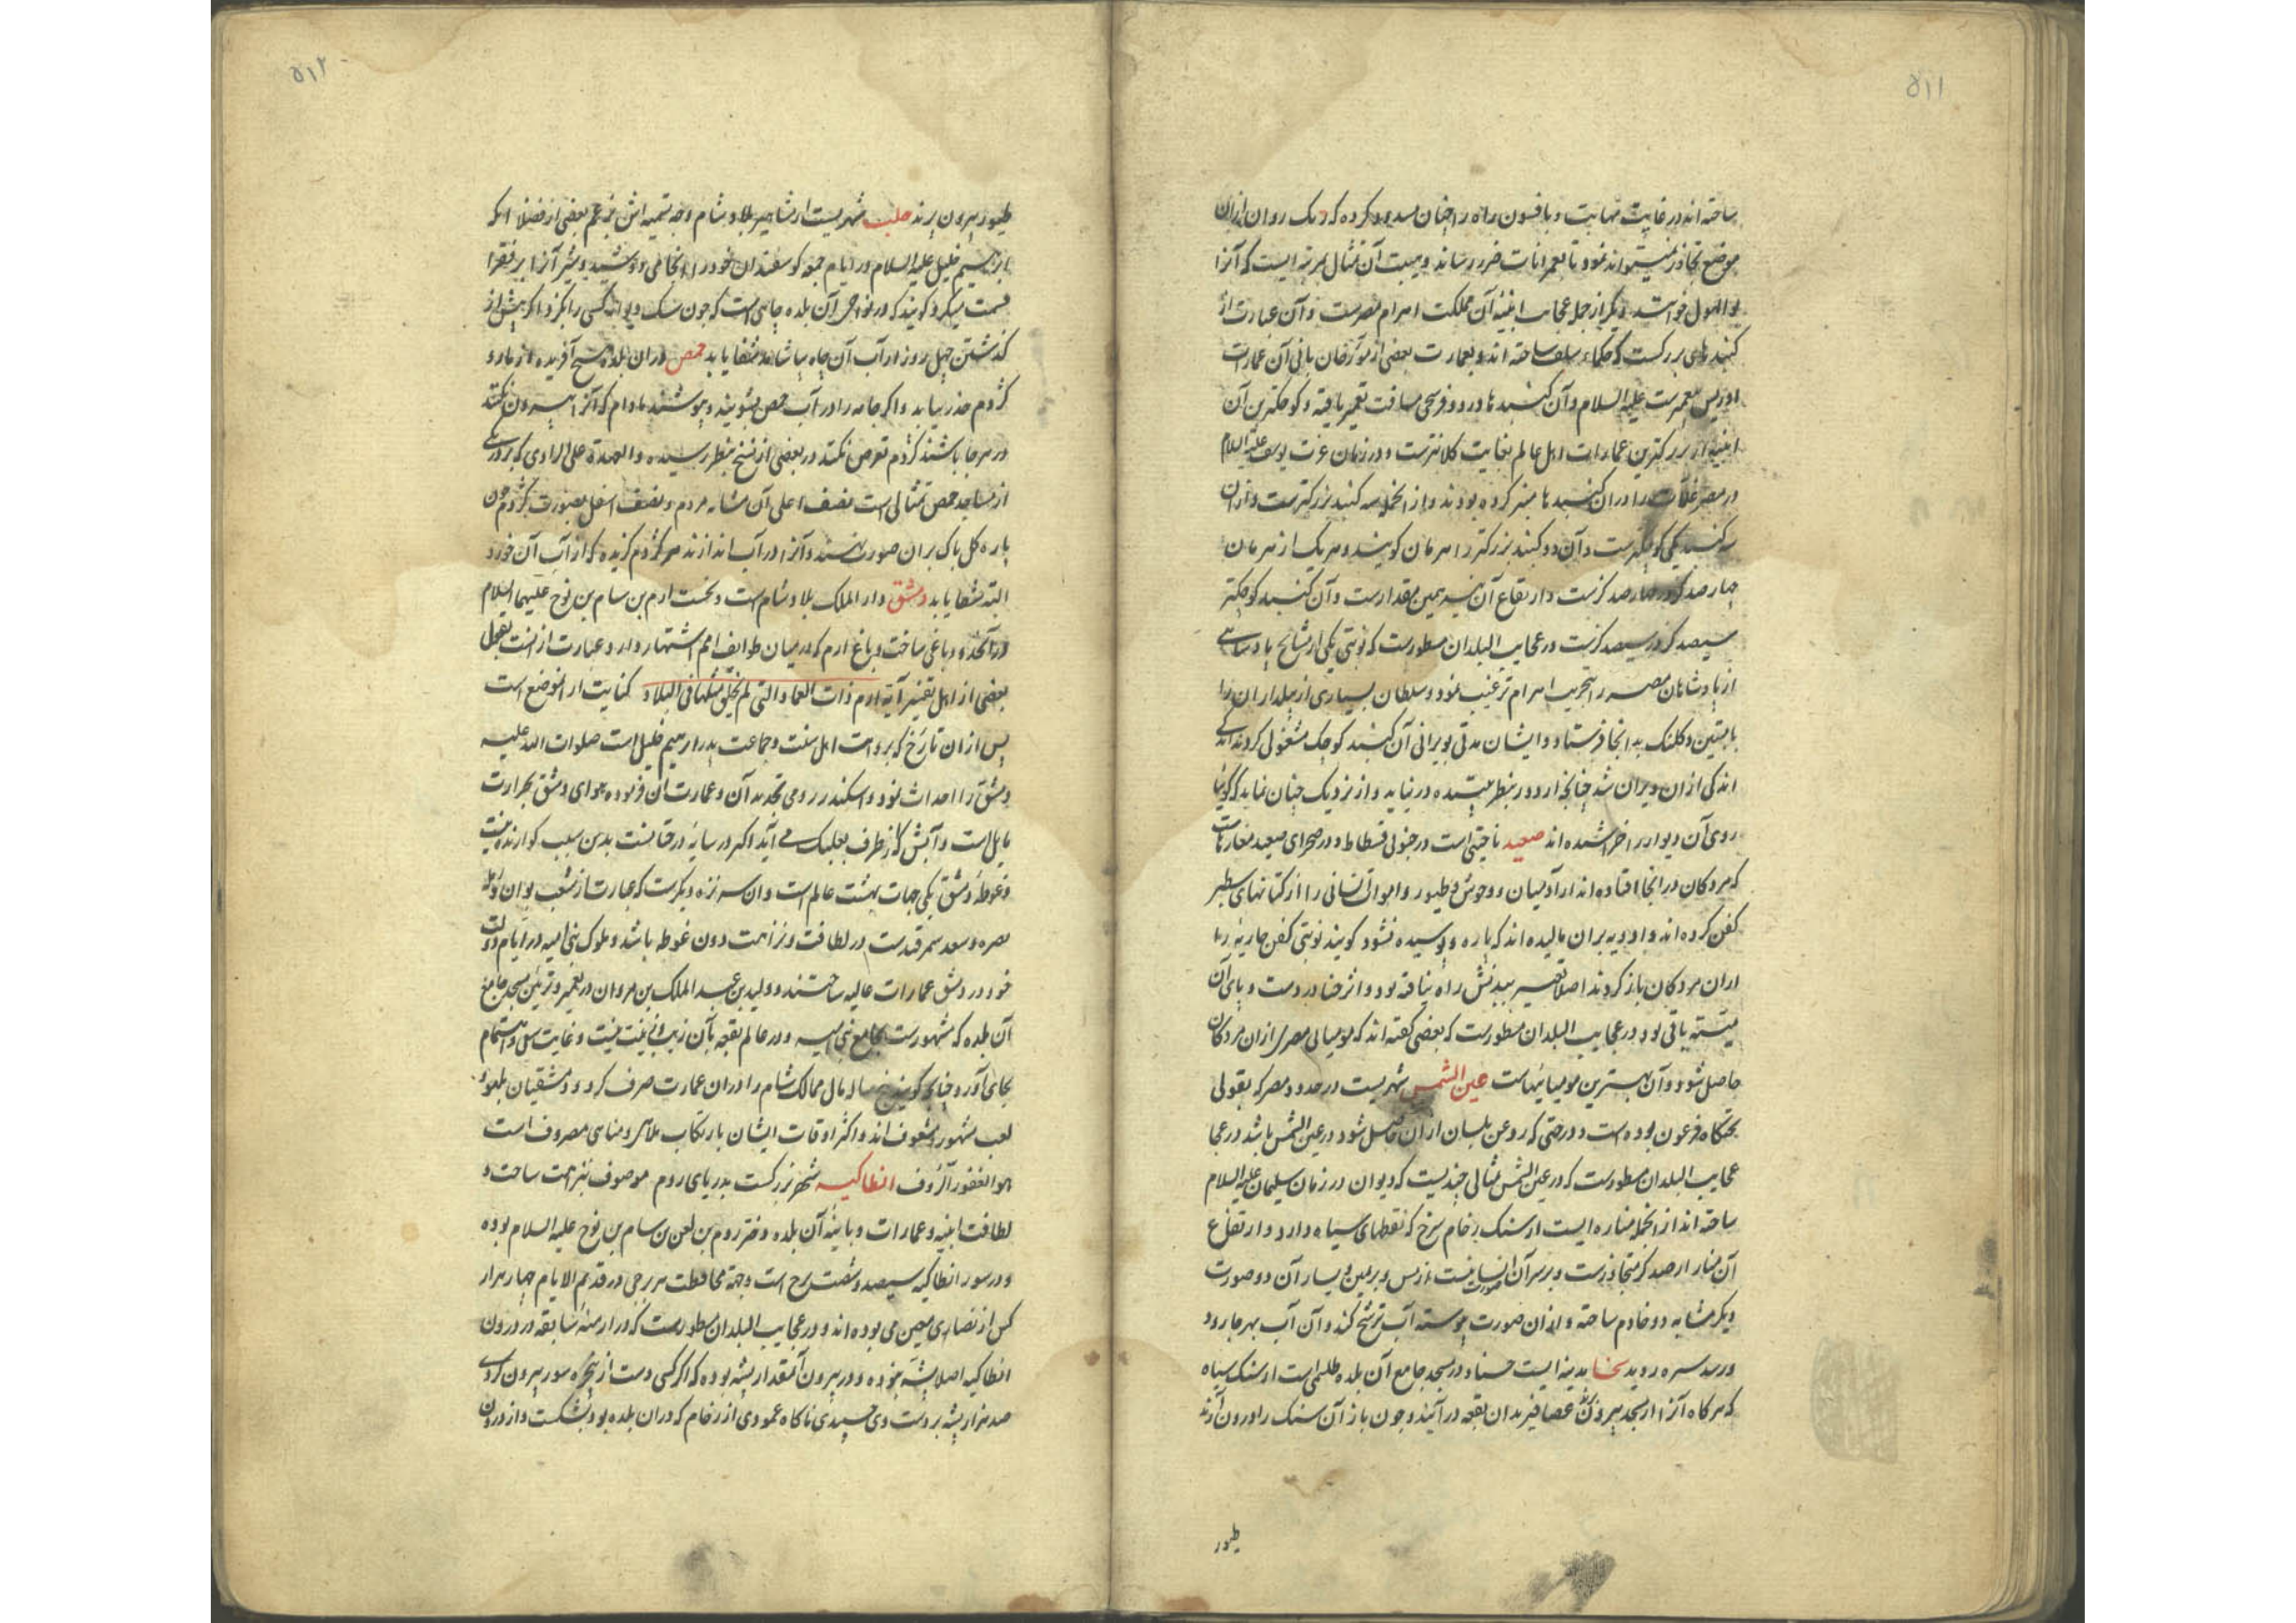 ٥١١
ساخته اند در غایت مهابت و بافسون راه را چنان مسدود کرده که ریک روان ازان
موضع تجاوز نمیتواند نمود تا بعمرانات ضرر رساند و هیبت آن تمثال بمرتبه ایست که آنرا
ابو الهول خوانند و دیگر از جمله عجایب ابنیه آن مملکت اهرام مصرست و آن عبارت از
کنبدهای بزرکست که حکماء سلف ساخته اند و بعبارت بعضی از مورخان بانی آن عمارات
ادریس پیغمبرست علیه السلام و آن کنبدها در دو فرسخی مسافت تعمیر یافته و کوچکترین آن
ابنیه از بزرکترین عمارات اهل عالم بغایت کلانترست و در زمان عزت یوسف علیه السلام
در مصر غلات را دران کنبدها منبر کرده بودند و از انجمله سه کنبد بزرکترست و ازان
سه کنبد یکی کوچکترست و آن دو کنبد بزرکتر را هرمان کویند و هر یک از هرمان
چهارصد کز در چهارصد کزست و ارتفاع آن نیز بهمین مقدارست و آن کنبد کوچکتر
سیصد کز در سیصد کزست در عجایب البلدان مسطورست که نوبتی یکی از مشایخ پادشاهی
از پادشاهان مصر را بتخریب اهرام ترغیب نمود و سلطان بسیاری از بیلداران را
با میتین و کلنک بدانجا فرستاد و ایشان مدتی بویرانی آن کنبد کوچک مشغولی کردند اندک
اندکی ازان ویران شد چنانچه از دور بنظر بیننده در نیاید و از نزدیک چنان نماید که کوئیا
روی آن دیوار را خراشیده اند صعید ناحیتی است در جنوبی فسطاط و در صحرای صعید مغارهاست
که مردکان در انجا افتاده اند از آدمیان و وحوش و طیور و اموات انسانی را از کتانهای سطبر
کفن کرده اند و ادویه بران مالیده اند که پاره و پوسیده نشود کویند نوبتی کفن جاریه را
ازان مردکان باز کردند اصلا تغییر ببدنش راه نیافته بود و اثر حنا در دست و پای آن
میته باقی بود و در عجایب البلدان مسطورست که بعضی کفته اند که مومیائی مصری ازان مردکان
حاصل شود و آن بهترین مومیائیهاست عین الشمس شهریست در حدود مصر که بقولی
تختکاه فرعون بوده است و درختی که روغن بلسان ازان حاصل شود در عین الشمس باشد در عجا
عجایب البلدان مسطورست که در عین الشمس تمثالی چندیست که دیوان در زمان سلیمان علیه السلام
ساخته اند از انجمله مناره ایست از سنک رخام سرخ که نقطهای سیاه دارد و ارتفاع
آن منار از صد کز متجاوزست و بر سر آن صورت انسانیست از مس و بر یمین و یسار آن دو صورت
دیکر مشابه دو خادم ساخته و ازان صورت پیوسته آب ترشح کند و آن آب بهر جا رود
و رسد سبزه روید سخنا مدینه ایست حسناء در مسجد جامع آن بلده طلسمی است از سنک سیاه
که هر کاه آنرا از مسجد بیرون برند عصافیر بدان بقعه درآیند و چون باز آن سنک را درون آرند
طیور
٥١٢
طیور بیرون پرند حلب شهریست از مشاهیر بلاد شام وجه تسمیه اش بزعم بعضی از فضلا آنکه
ابراهیم خلیل علیه السلام در ایام جمعه کوسفندان خود را در انجا می دوشید و شیر آنرا بر فقرا
قسمت میکرد کویند که در نواحی آن بلده چاهی است که چون سک دیوانه کسی را بکزد اکر پیش از
کذشتن چهل روز از آب آن چاه بیاشامد شفا یابد حمص دران بلده هیچ آفریده از مار و
کژدم ضرر نیابد و اکر جامه را در آب حمص بشویند و بپوشند مادام که آنرا بیرون نکنند
در هر جا باشند کژدم تعرض نکند و در بعضی از نسخ بنظر رسیده والعهدة علی الراوی که بر در یکی
از مساجد حمص تمثالی است نصف اعلی آن مشابه مردم و نصف اسفل بصورت کژدم چون
پاره کل پاک بران صورت نهند و آنرا در آب اندازند هر کژدم کزیده که از آن آب خورد
البته شفا یابد دمشق دار الملک بلاد شام است و نخست ارم بن سام بن نوح علیهما السلام
در آنحدود باغی ساخت و باغ ارم که در میان طوایف امم اشتهار دارد عبارت از انست بقول
بعضی از اهل تفسیر آیه ارم ذات العماد التی لم یخلق مثلها فی البلاد کنایت از انموضع است
پس ازان تارخ که بروایت اهل سنت و جماعت پدر ابراهیم خلیل است صلوات الله علیه
دمشق را احداث نمود و اسکندر رومی تجدید آن و عمارت آن فرموده هوای دمشق بحرارت
مایل است و آبش که از طرف بعلبک می آید اکثر در سایه درختانست بدین سبب کوارنده نیست
و غوطه دمشق یکی جهات بهشت عالم است و ان سه نزه دیکرست که عبارت از شعب بوان و ابله
بصره و سعد سمرقندست در لطافت و نزاهت دون غوطه باشد و ملوک بنی امیه در ایام دولت
خود در دمشق عمارات عالیه ساختند و ولید بن عبد الملک بن مروان در تعمیر و تزیین مسجد جامع
آن بلده که مشهورست بجامع بنی امیه و در عالم بقعه بآن زیب و زینت نیست و غایت سعی و اهتمام
بجای آورد چنانچه کویند پنج ساله مال ممالک شام را دران عمارت صرف کرد و دمشقیان بلهو و
لعب مشهور و مشعوف اند و اکثر اوقات ایشان بارتکاب ملاهی و مناهی مصروف است
هو الغفور الرؤف انطاکیه شهر بزرکست بدریای روم موصوف بنزاهت ساحت و
لطافت ابنیه و عمارات و بانیه آن بلده دختر روم بن لعن بن سام بن نوح علیه السلام بوده
و در سور انطاکیه سیصد و شصت برج است و جهة محافظت هر برجی در قدیم الایام چهار هزار
کس از نصاری معین می بوده اند و در عجایب البلدان مسطورست که در ازمنه سابقه در درون
انطاکیه اصلا پشه نبوده و در بیرون آنمقدار پشه بوده که اکر کسی دست از پنجره سور بیرون کردی
صد هزار پشه بر دست وی چسبیدی ناکاه عمودی از رخام که دران بلده بود بشکست و از درون